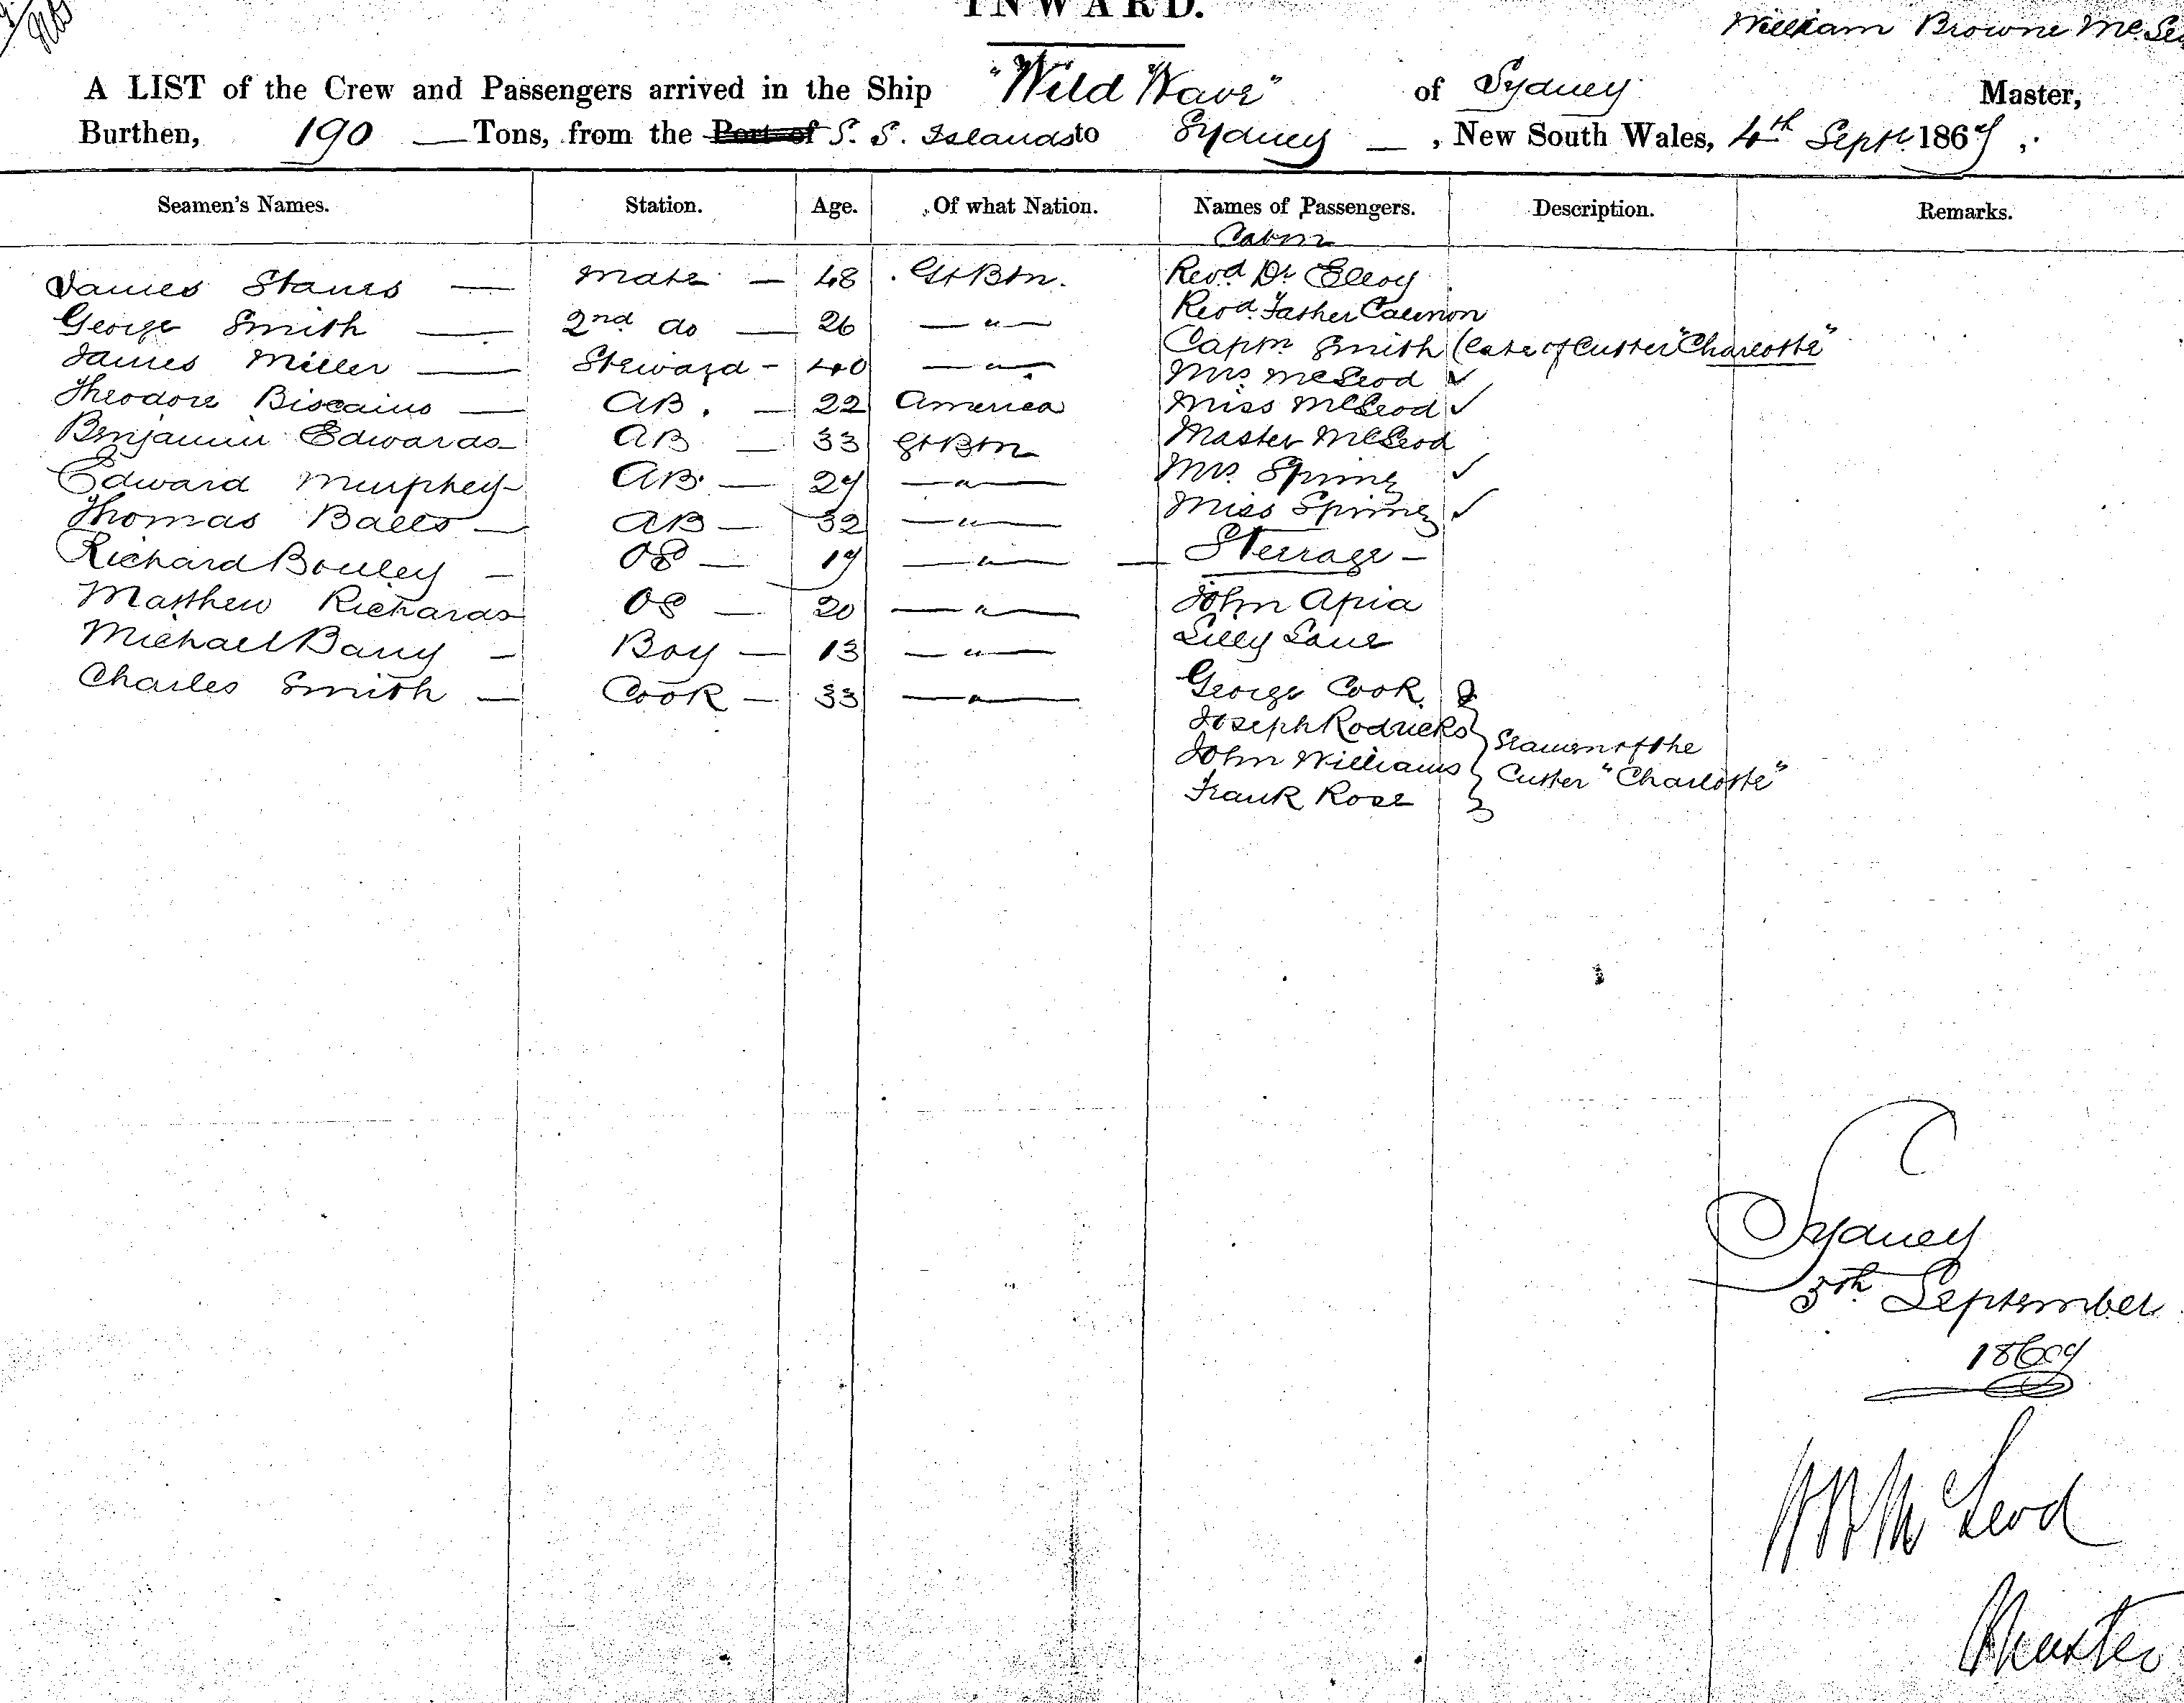 INWARD.
William Browne McLe
A LIST of the Crew and Passengers arrived in the Ship "Wild Wave" of Sydney Master,
Burthen, 190 Tons, from the Port of S. S. Islands to Sydney, New South Wales, 4th Sept. 1869.
Seamen's Names. Station. Age. Of what Nation. Names of Passengers. Description. Remarks.
Cabin
James Stanes — Mate — 48 Gt Btn. Revd. Dr Elloy
George Smith — 2nd do — 26 — " — Revd. Father
Captn Smith (late of Cutter "Charlotte"
James Miller — Steward - 40 — " — Mrs. McLeod ✓
Theodore — AB. — 22 America Miss McLeod ✓
Benjamin Edwards — AB — 33 Gt Btn Master McLeod
Edward Murphey — AB. — 29 — " — Mrs. Spring ✓
Thomas Balls — AB — 32 — " — Miss Spring ✓
Richard Bouley — OS — 19 — " — Sterrage —
Matthew Richards OS — 20 — " — John Apia
Michael Barry — Boy — 13 — " — Lilly Lane
Charles Smith — Cook — 33 — " — George Cook
Joseph Rodricks Seamen of the
John Williams Cutter "Charlotte"
Frank Rose
Sydney
5th September
1869
WB McLeod
Master